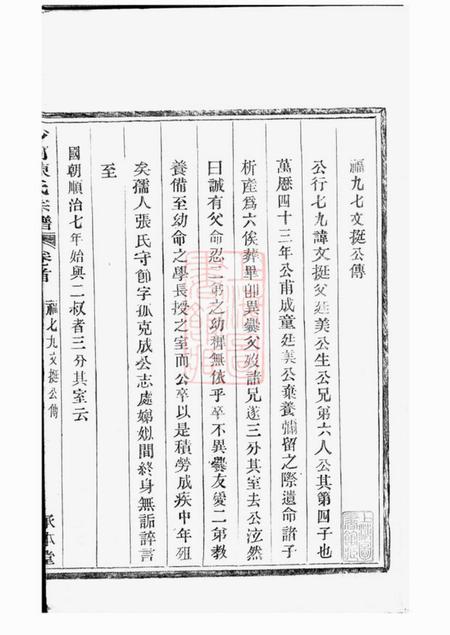 福九七文挺公傳
公行七九諱文挺父廷美公生公兄弟六人公其第四子也
萬厯四十三年公甫成童廷美公棄養彌留之際遺命諸子
析產為六俟葬畢即異爨父歿諸兄遂三分其室去公泣然
曰誠有父命忍二弟之幼稺無依乎卒不異爨友愛二弟教
養備至幼命之學長授之室而公卒以是積勞成疾中年殂
矣孺人張氏守節字孤克成公志處娣姒間終身無詬誶言
至
國朝順治七年始與二叔者三分其室云
陳氏宗譜
卷首
福七九文挺公傳
承本堂